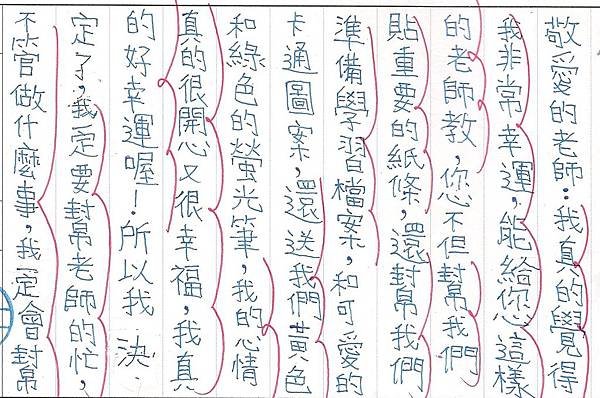 敬愛的老師：我真的覺得
我非常幸運，能給您這樣
的老師教，您不但幫我們
貼重要的紙條，還封幫我們
準備學習檔案，和可愛的
卡通圖案，還送我們黃色
和綠色的螢光筆，我的心情
真的很開心又很幸福，我真
的好幸運喔！所以我決
定了，我一定要封幫老師的忙，
不管做什麼事，我一定會封幫